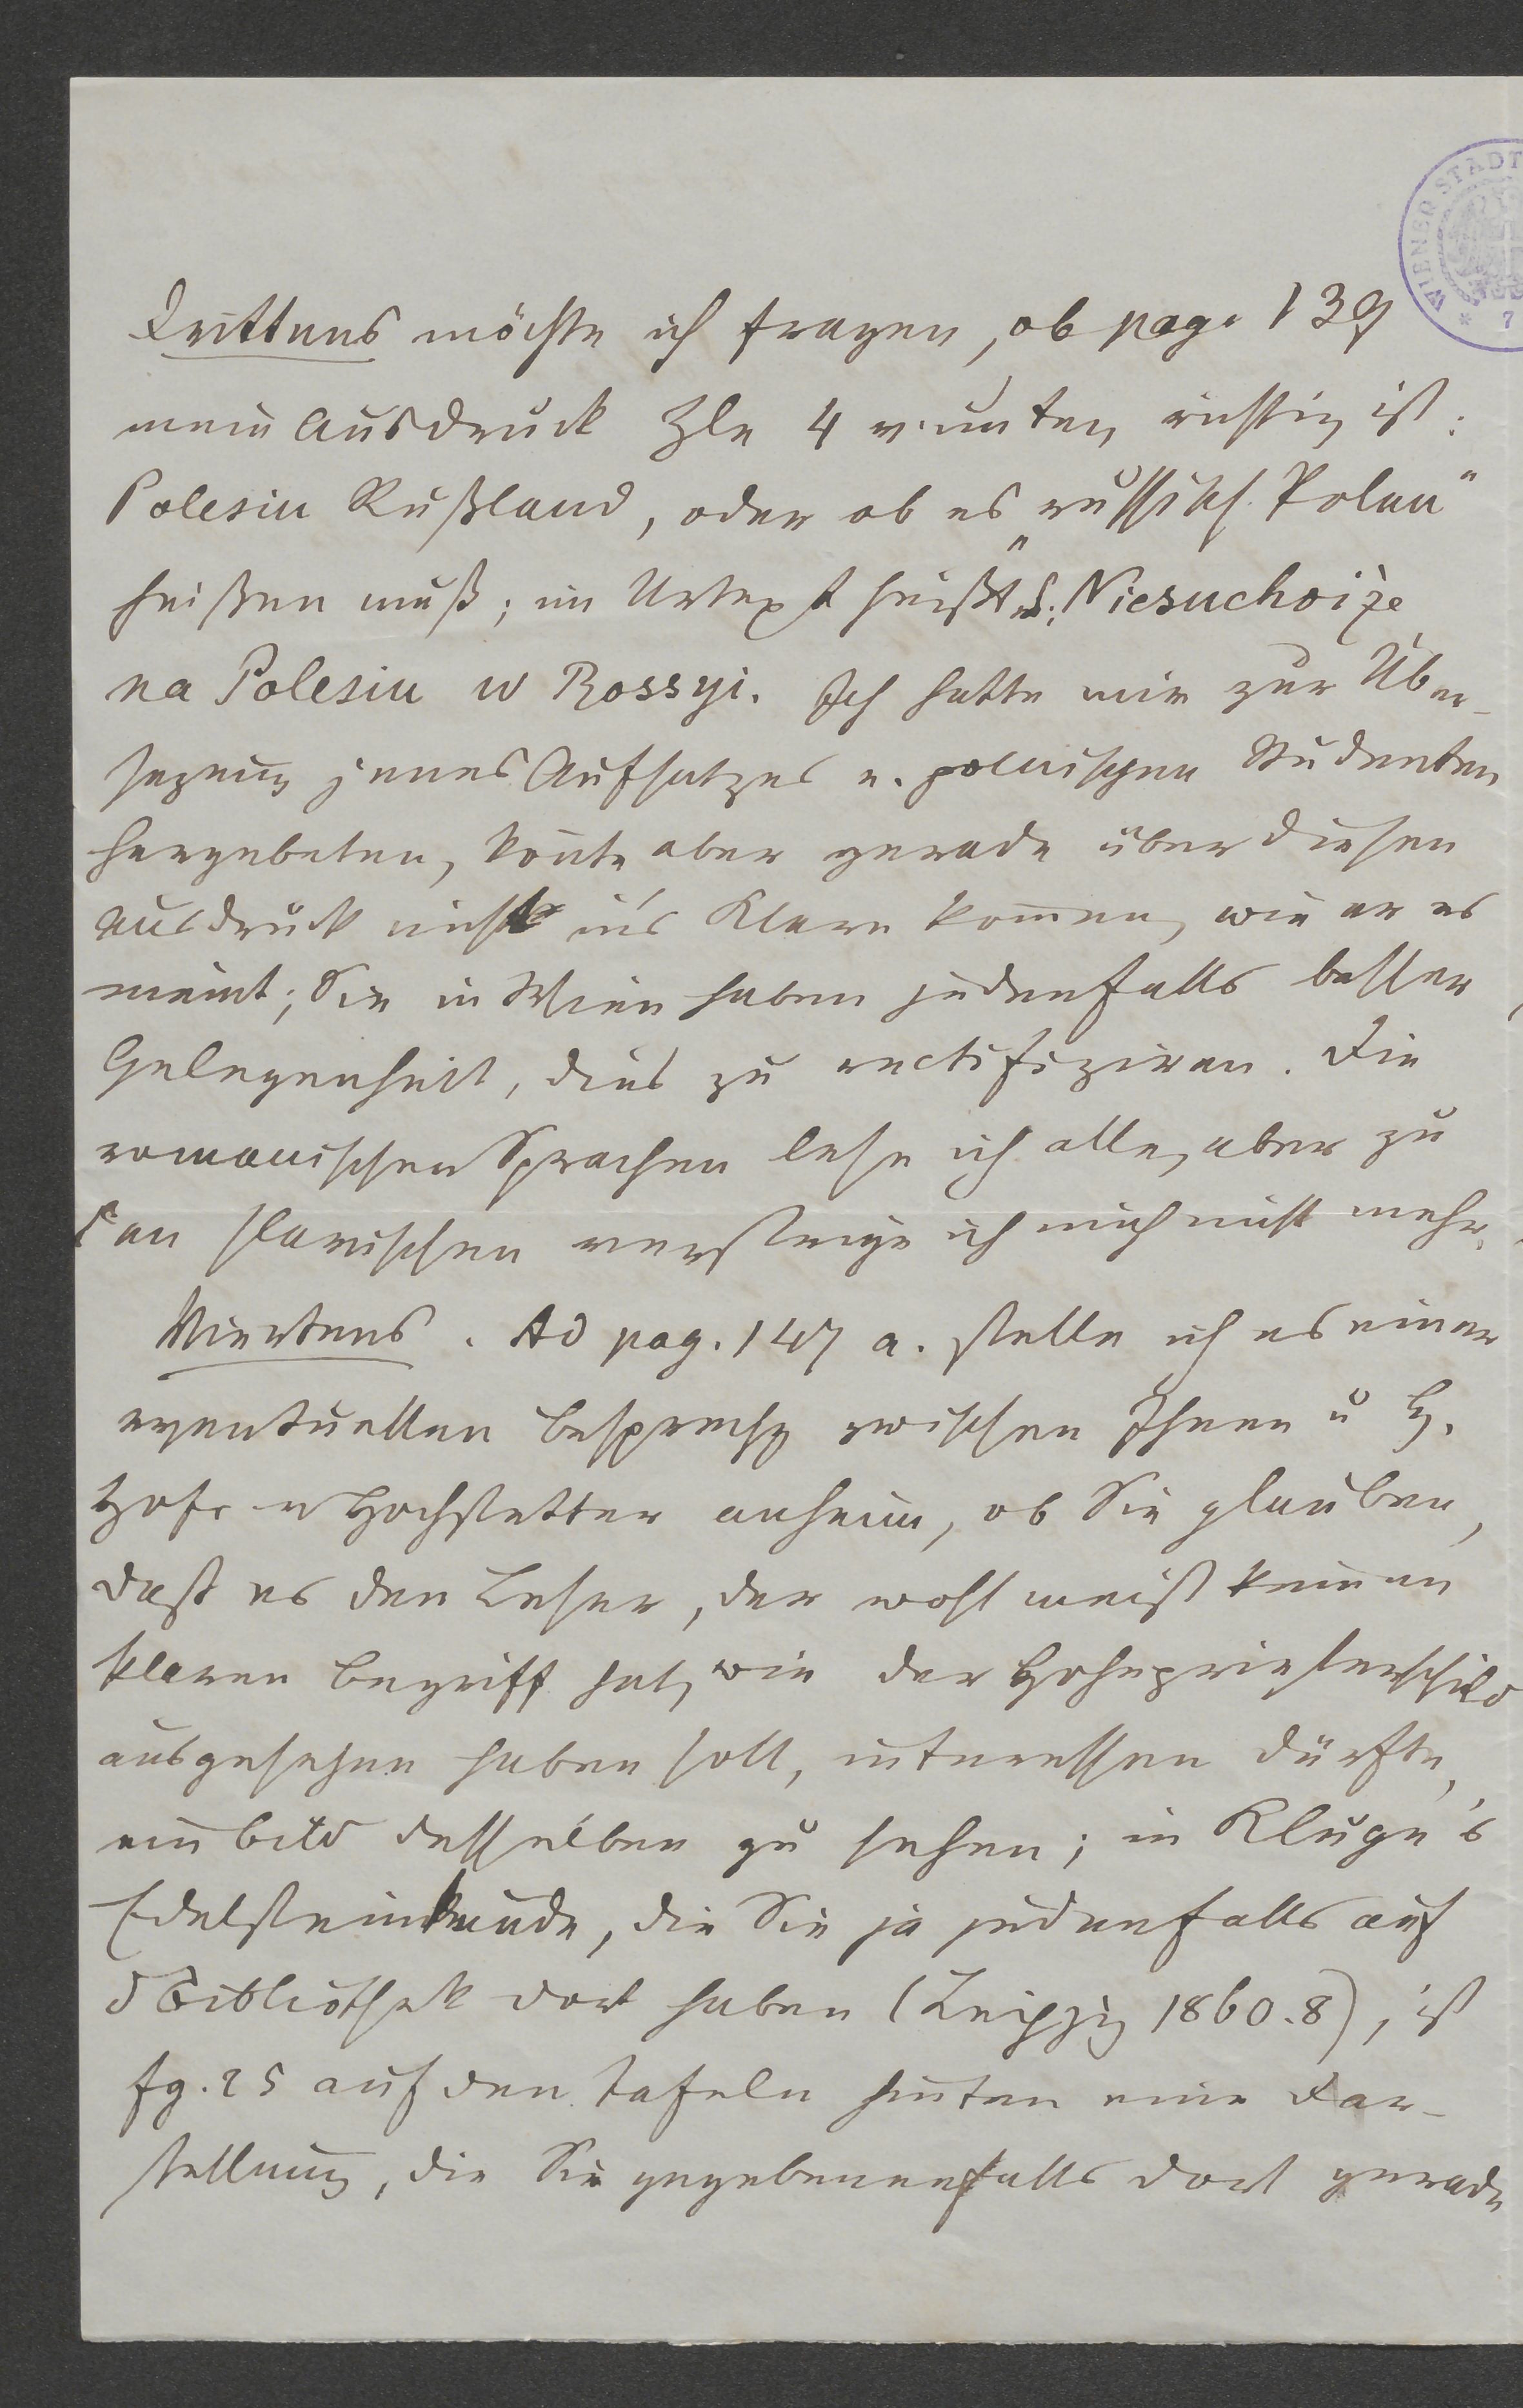 WIENER STADT
* 7
Drittens möchte ich fragen, ob pag. 139
mein Ausdruck Zle 4 v. unten, richtig ist:
Polesiu Rußland, oder ob es „russisch. Polen"
heißen muß; im Urtext heißt es: Niesuchoiże
na Polesiu w Rossyi. Ich hatte mir zur Über-
sezung jenes Aufsatzes e. polnischen Studenten
hergebeten, konnte aber gerade über diesen
Ausdruck nicht in's Klare kommen, wie er es
meint; Sie in Wien haben jedenfalls besser
Gelegenheit, dies zu rectifiziren. Die
romanischen Sprachen lese ich alle, aber zu
den slavischen versteige ich mich nicht mehr.
Viertens. Ad pag. 147 a. stelle ich es einer
eventuellen Besprechg zwischen Ihnen u H.
Hofr v Hochstetter anheim, ob Sie glauben,
daß es den Leser, der wohl meist keinen
klaren Begriff hat, wie der Hohepriesterschild
ausgesehen haben soll, interessen dürfte,
ein Bild desselben zu sehen; in Kluge's
Edelsteinkunde, die Sie ja jedenfalls auf
d Bibliothek dort haben (Leipzig 1860. 8), ist
fg. 25 auf den Tafeln hinten eine Dar-
stellung, die Sie gegebenenfalls dort gerade